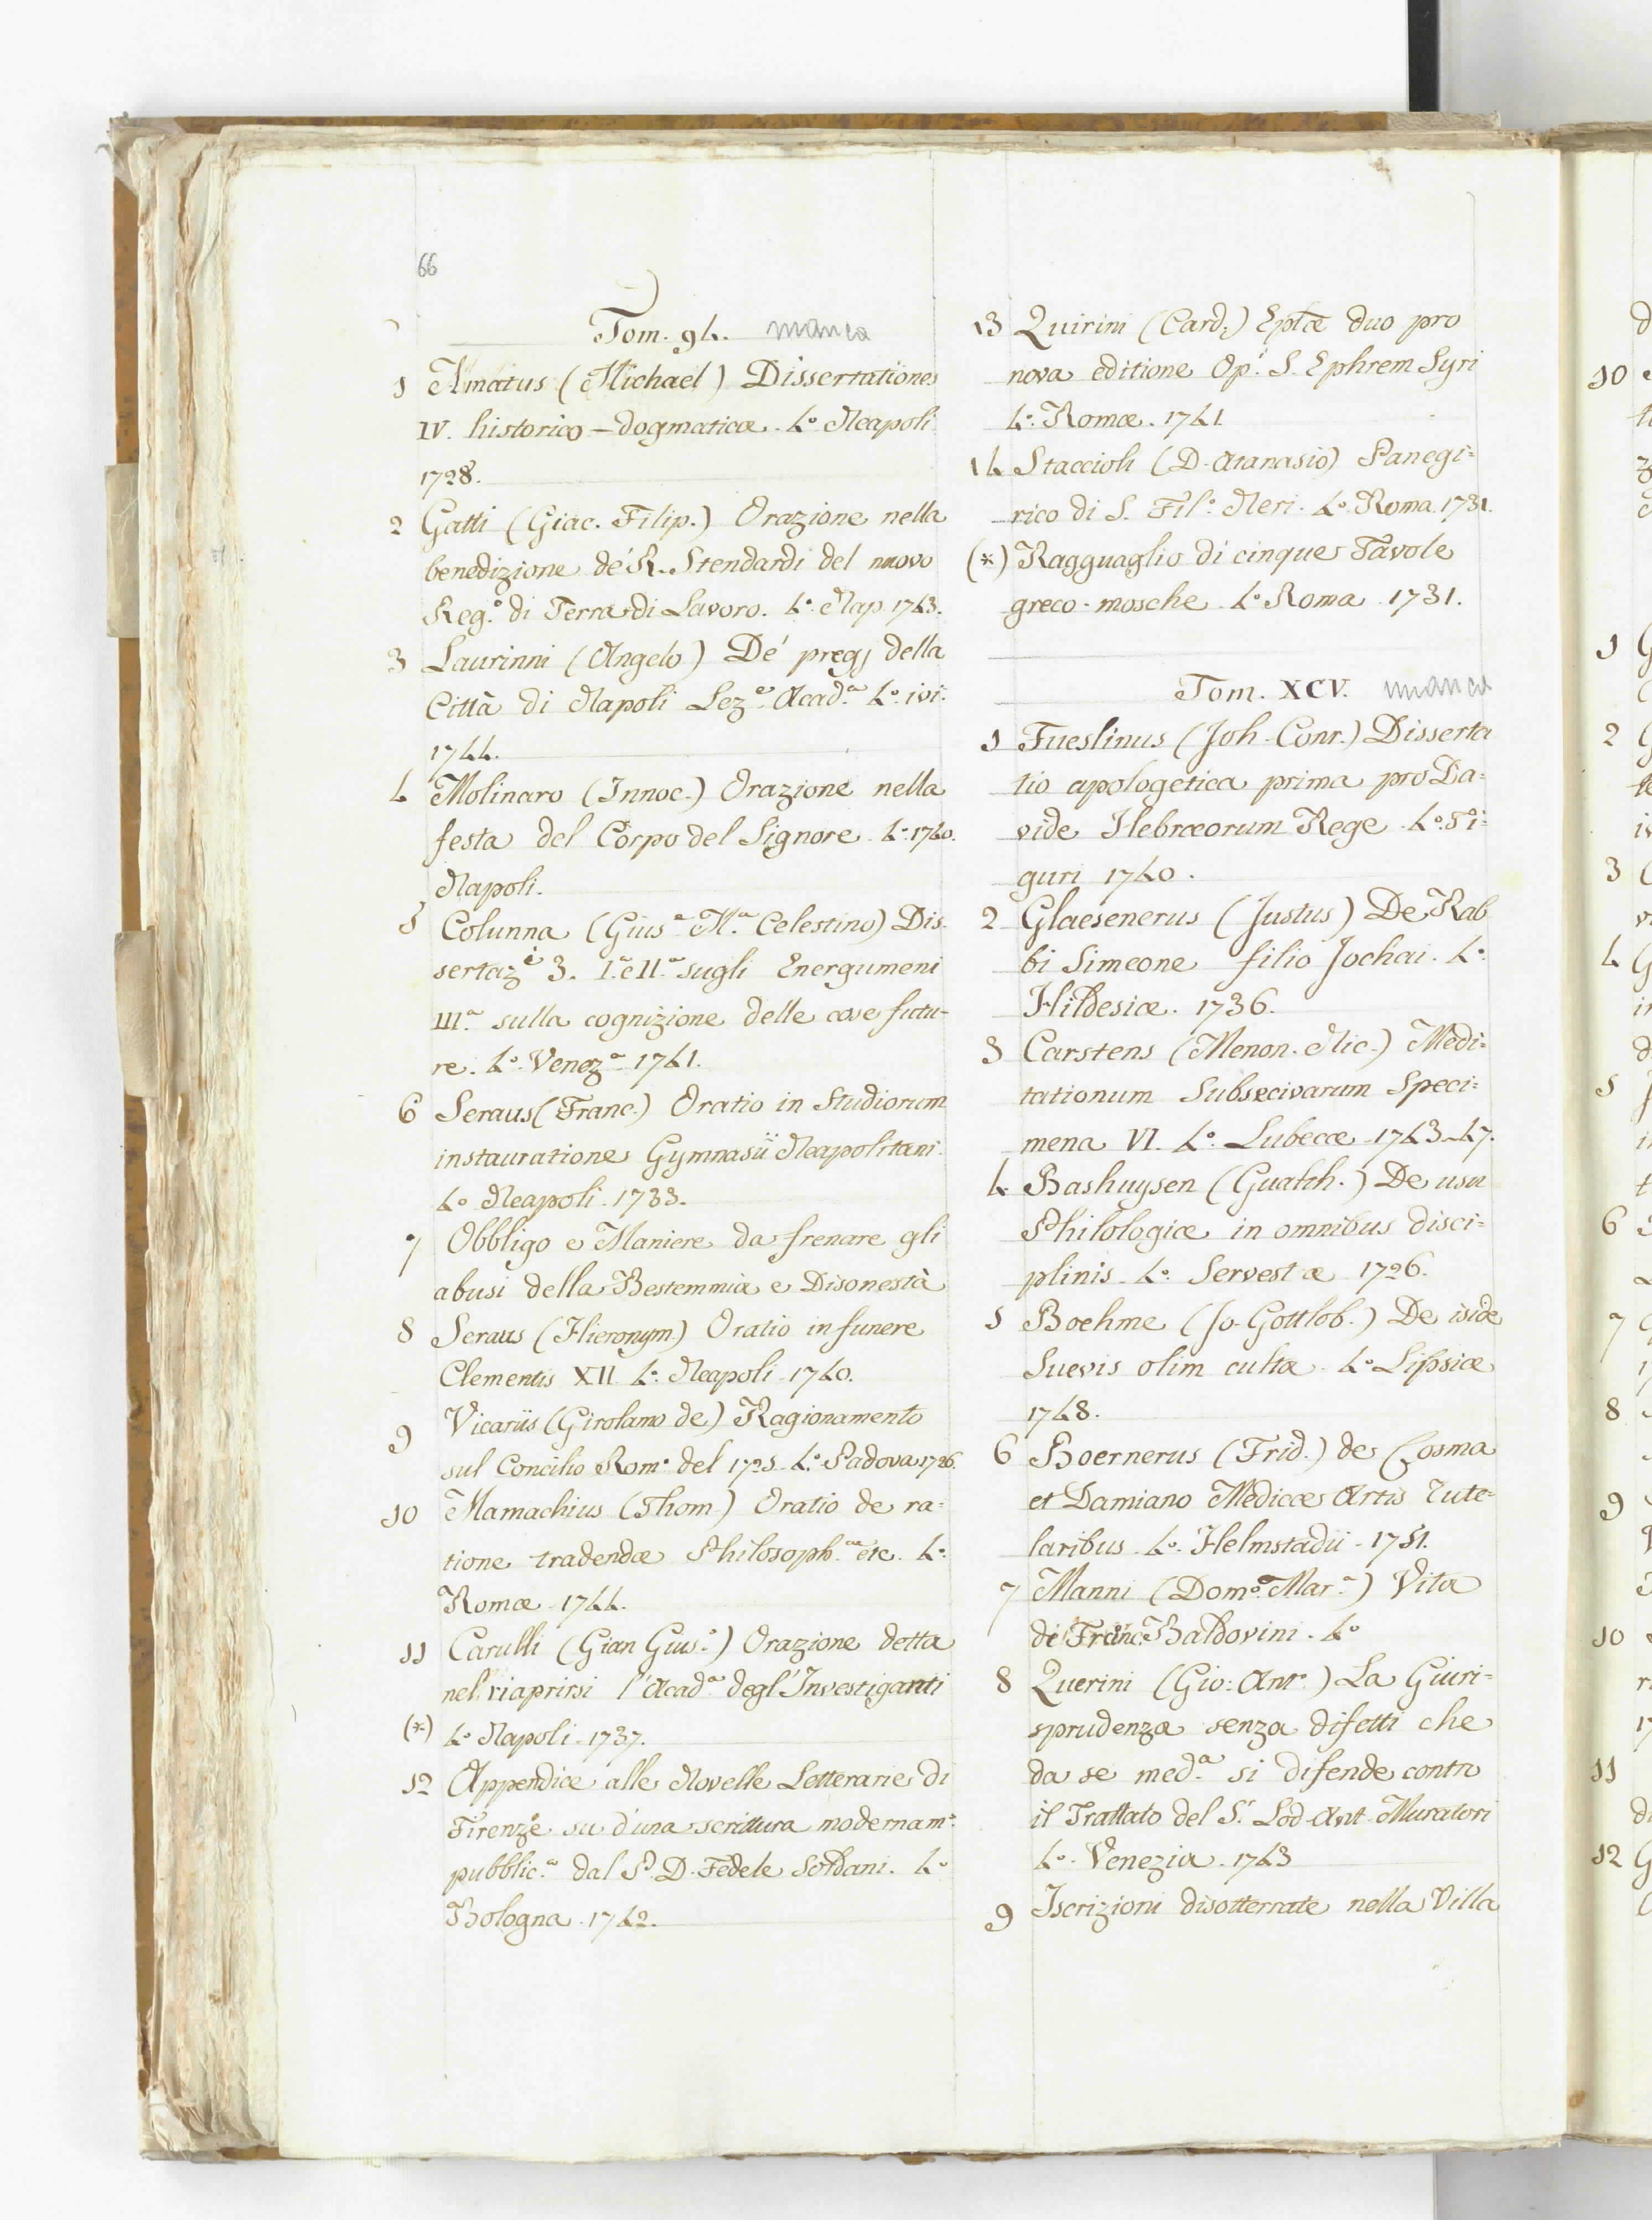 66
Tom. 94. manca
1 Amatus (Michael) Dissertationes
IV. historico-dogmaticæ. 4.º Neapoli
1728.
2 Gatti (Giac. Filip.) Orazione nella
benedizione de' R. Stendardi del nuovo
Reg.º di Terra di Lavoro. 4.º Nap. 1743.
3 Laurinni (Angelo) De' pregj della
Città di Napoli Lez.e Acad.a 4.º ivi.
1744.
4 Molinaro (Innoc.) Orazione nella
festa del Corpo del Signore. 4.º 1740.
Napoli.
5 Colunna (Gius.e M.a Celestino) Dis.
sertaz.e 3. I.a e II.a sugli Energumeni
III.a sulla cognizione delle cose futu-
re. 4.º Venez.a 1741.
6 Seraus (Franc.) Oratio in Studiorum
instauratione Gymnasii Neapolitani.
4.º Neapoli. 1733.
7 Obbligo e Maniere da frenare gli
abusi della Bestemmia e Disonestà
8 Seraus (Hieronym.) Oratio in funere
Clementis XII. 4.º Neapoli. 1740.
9 Vicariis (Girolamo de) Ragionamento
sul Concilio Rom.º del 1725. 4.º Padova 1726.
10 Mamachius (Thom.) Oratio de ra=
tione tradendæ Philosoph.æ etc. 4.º
Romæ. 1744.
11 Carulli (Gian Gius.e) Orazione detta
nel riaprirsi l'Acad.a degl'Investiganti
(*) 4.º Napoli. 1737.
12 Appendice alle Novelle Letterarie di
Firenze su d'una scrittura modernam.e
pubblic.a dal S.r D. Fedele Soldani. 4.º
Bologna. 1742.
13 Quirini (Card.) Eplæ duo pro
nova editione Op. S. Ephrem Syri
4.º Romæ. 1741.
14 Staccioli (D. Atanasio) Panegi=
rico di S. Fil.º Neri. 4.º Roma. 1731.
(*) Ragguaglio di cinque Tavole
greco-mosche. 4.º Roma. 1731.
Tom. XCV. manca
1 Fueslinus (Joh. Conr.) Disserta
tio apologetica prima pro Da=
vide Hebræorum Rege. 4.º Ti=
guri 1740.
2 Glaesenerus (Justus) De Rab
bi Simeone filio Jochai. 4.º
Hildesiæ. 1736.
3 Carstens (Menon. Nic.) Medi=
tationum Subsecivarum Speci=
mena VI. 4.º Lubecæ. 1743-47.
4 Bashuysen (Gualth.) De usu
Philologiæ in omnibus disci=
plinis. 4.º Servestæ 1726.
5 Boehme (Jo. Gottlob.) De iside
Suevis olim culta. 4.º Lipsiæ
1748.
6 Boernerus (Frid.) de Cosma
et Damiano Medicæ Artis Tute=
laribus. 4.º Helmstadii. 1751.
7 Manni (Dom.º Mar.a) Vita
di Franc. Baldovini. 4.º
8 Querini (Gio: Ant.º) La Giuri=
sprudenza senza difetti che
da se med.a si difende contro
il Trattato del S.r Lod. Ant. Muratori
4.º Venezia. 1743
9 Iscrizioni disotterrate nella Villa